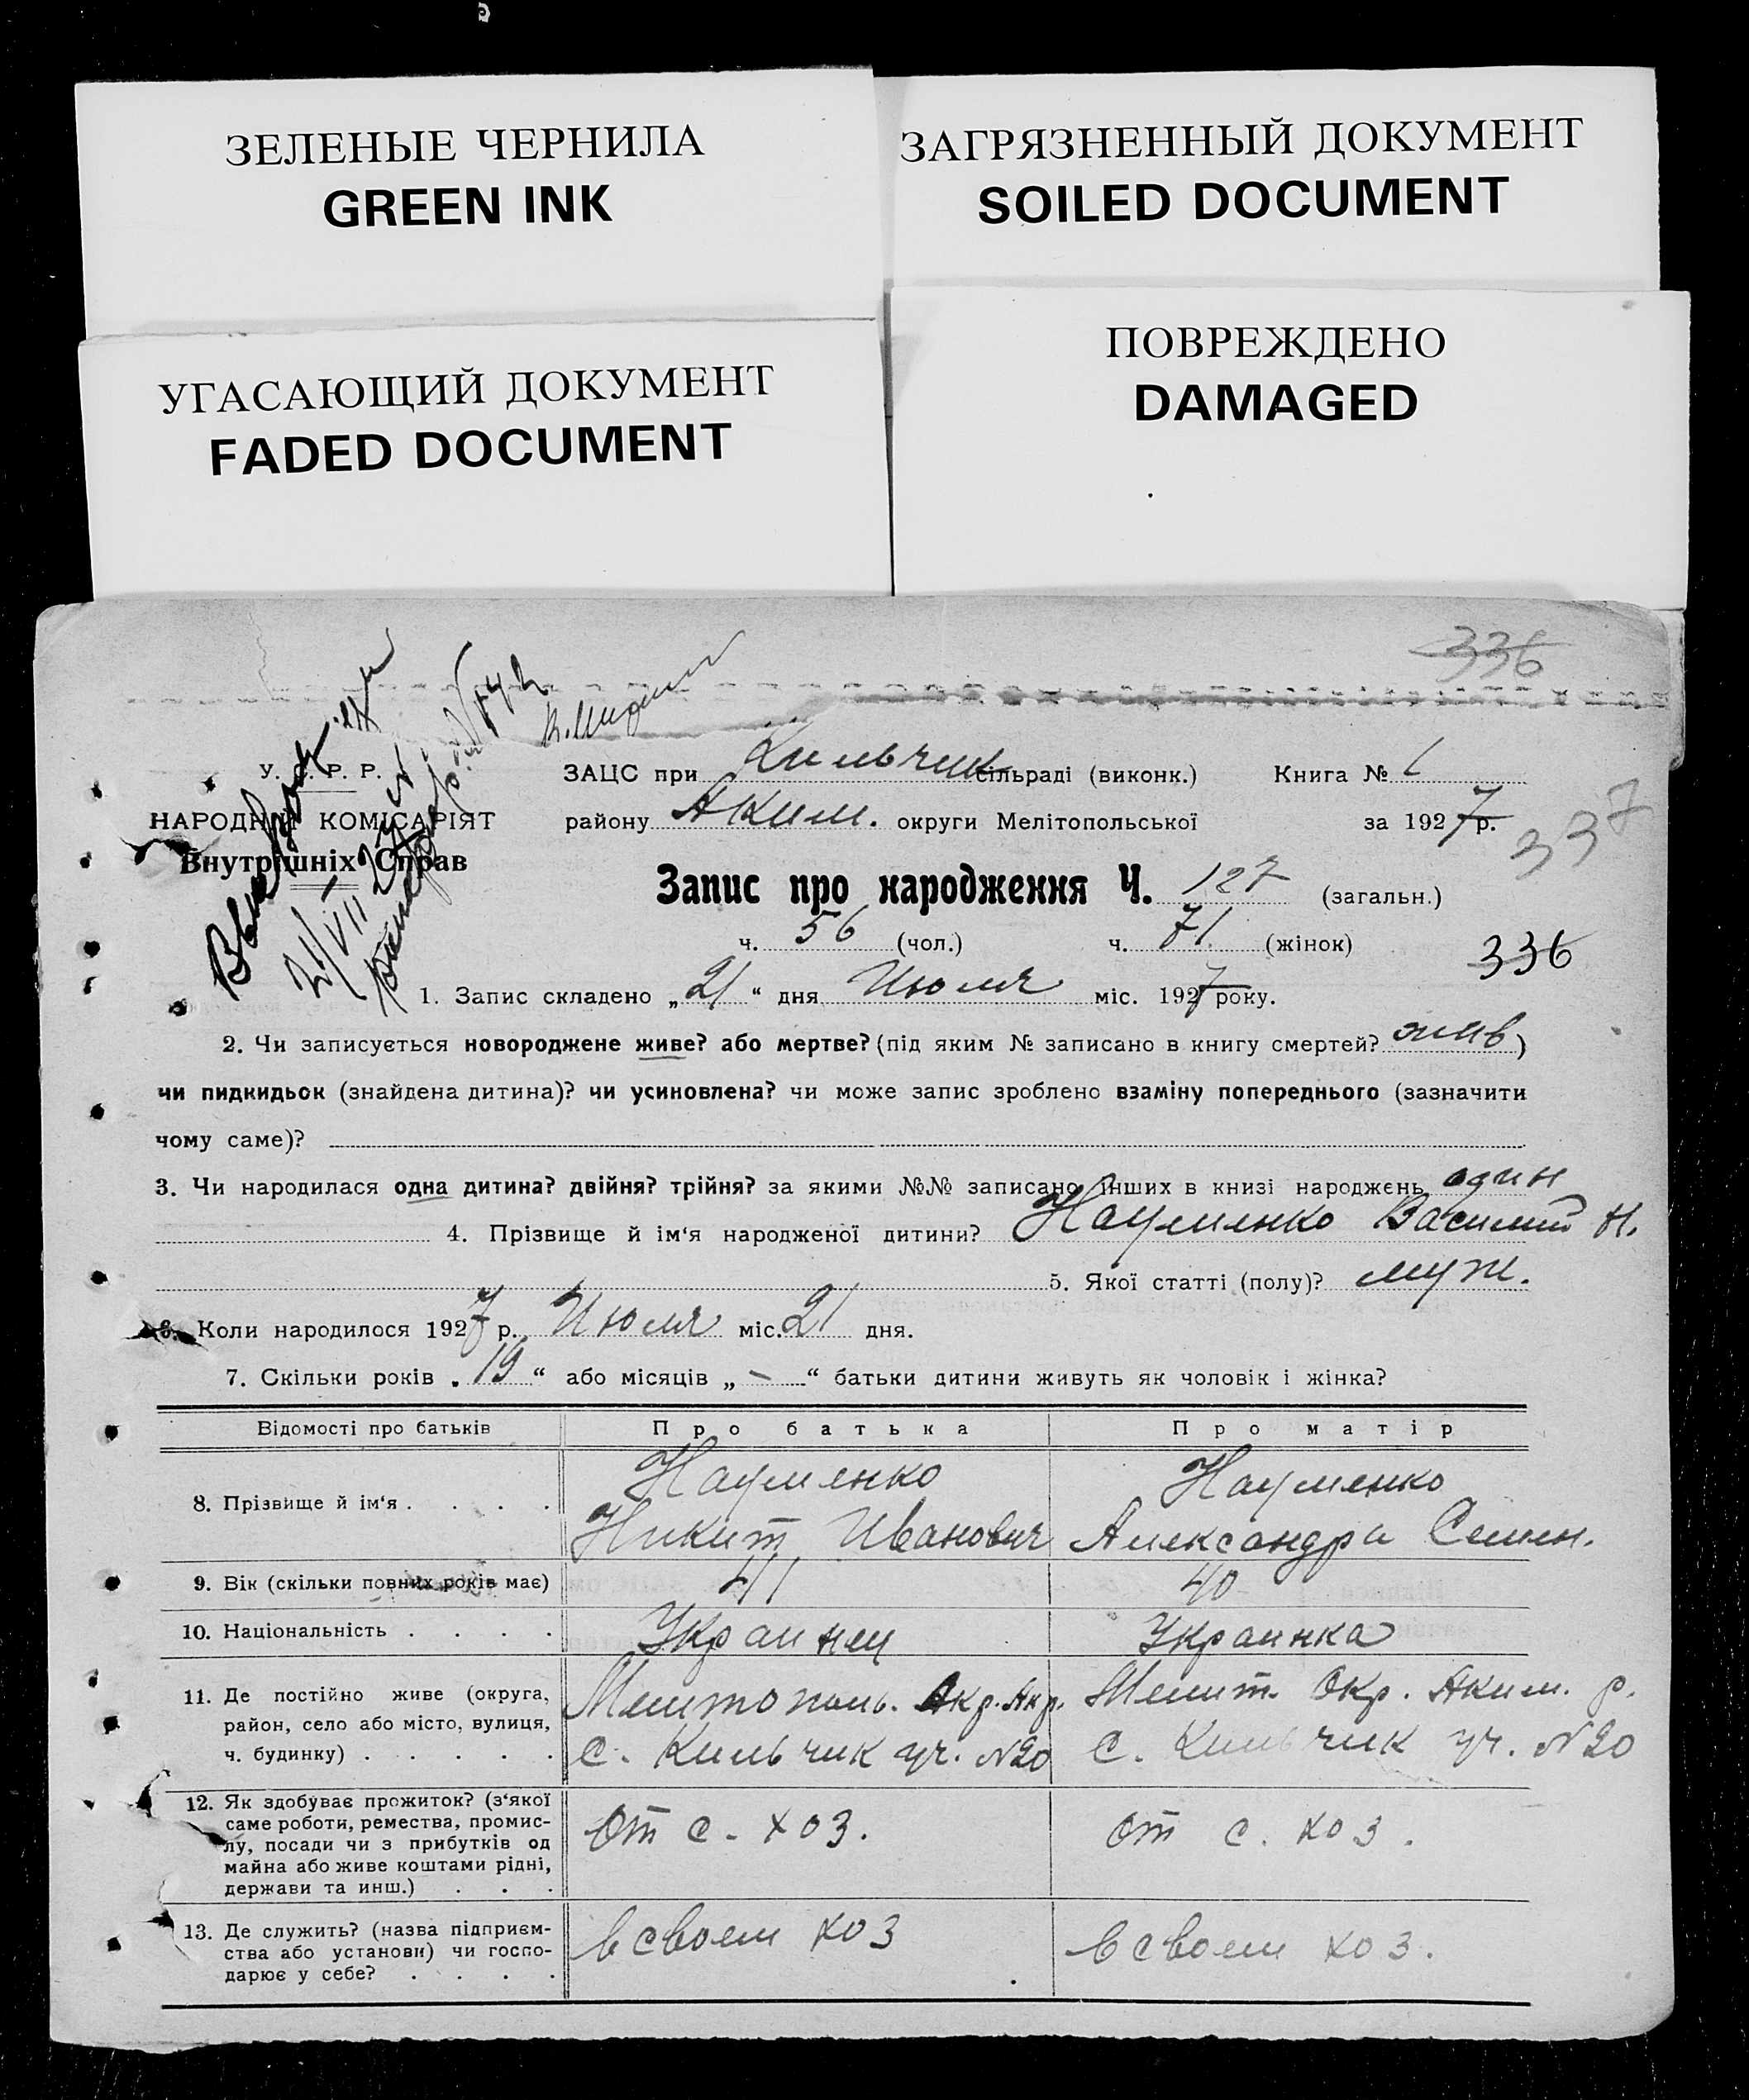 ЗЕЛЕНЫЕ ЧЕРНИЛА
GREEN INK
ЗАГРЯЗНЕННЫЙ ДОКУМЕНТ
SOILED DOCUMENT
УГАСАЮЩИЙ ДОКУМЕНТ
FADED DOCUMENT
ПОВРЕЖДЕНО
DAMAGED
336
У. С. Р. Р.
НАРОДНІЙ КОМІСАРІЯТ
Внутрішніх Справ
21/VII 27
ЗАЦС при Кильчик сільраді (виконк.) Книга № 1
району Аким. округи Мелітопольської за 1927 р.
337
Запис про народження Ч. 127 (загальн.)
ч. 56 (чол.) ч. 71 (жінок)
336
1. Запис складено „21“ дня Июля міс. 1927 року.
2. Чи записується новороджене живе? або мертве? (під яким № записано в книгу смертей? жив)
чи пидкидьок (знайдена дитина)? чи усиновлена? чи може запис зроблено взаміну попереднього (зазначити
чому саме)?
3. Чи народилася одна дитина? двійня? трійня? за якими №№ записано інших в книзі народжень один
4. Прізвище й ім‘я народженої дитини? Науменко Василий Н.
5. Якої статті (полу)? муж.
6. Коли народилося 1927 р. Июля міс. 21 дня.
7. Скільки років „19“ або місяців „ — “ батьки дитини живуть як чоловік і жінка?
Відомості про батьків Про батька Про матір
8. Прізвище й ім‘я . . . . Науменко Науменко
Никит Иванович Александра Семен.
9. Вік (скільки повних років має) 41 40
10. Національність . . . . Украинец Украинка
11. Де постійно живе (округа, Мелитополь. Окр. Акр. Мелит. Окр. Аким. р.
район, село або місто, вулиця,
ч. будинку) . . . . . с. Кильчик уч. №20 с. Кильчик уч. №20
12. Як здобуває прожиток? (з‘якої
саме роботи, ремества, промис- От с. хоз. от с. хоз.
лу, посади чи з прибутків од
майна або живе коштами рідні,
держави та инш.) . . .
13. Де служить? (назва підприєм- в своем хоз в своем хоз.
ства або установи) чи госпо-
дарює у себе? . . . .